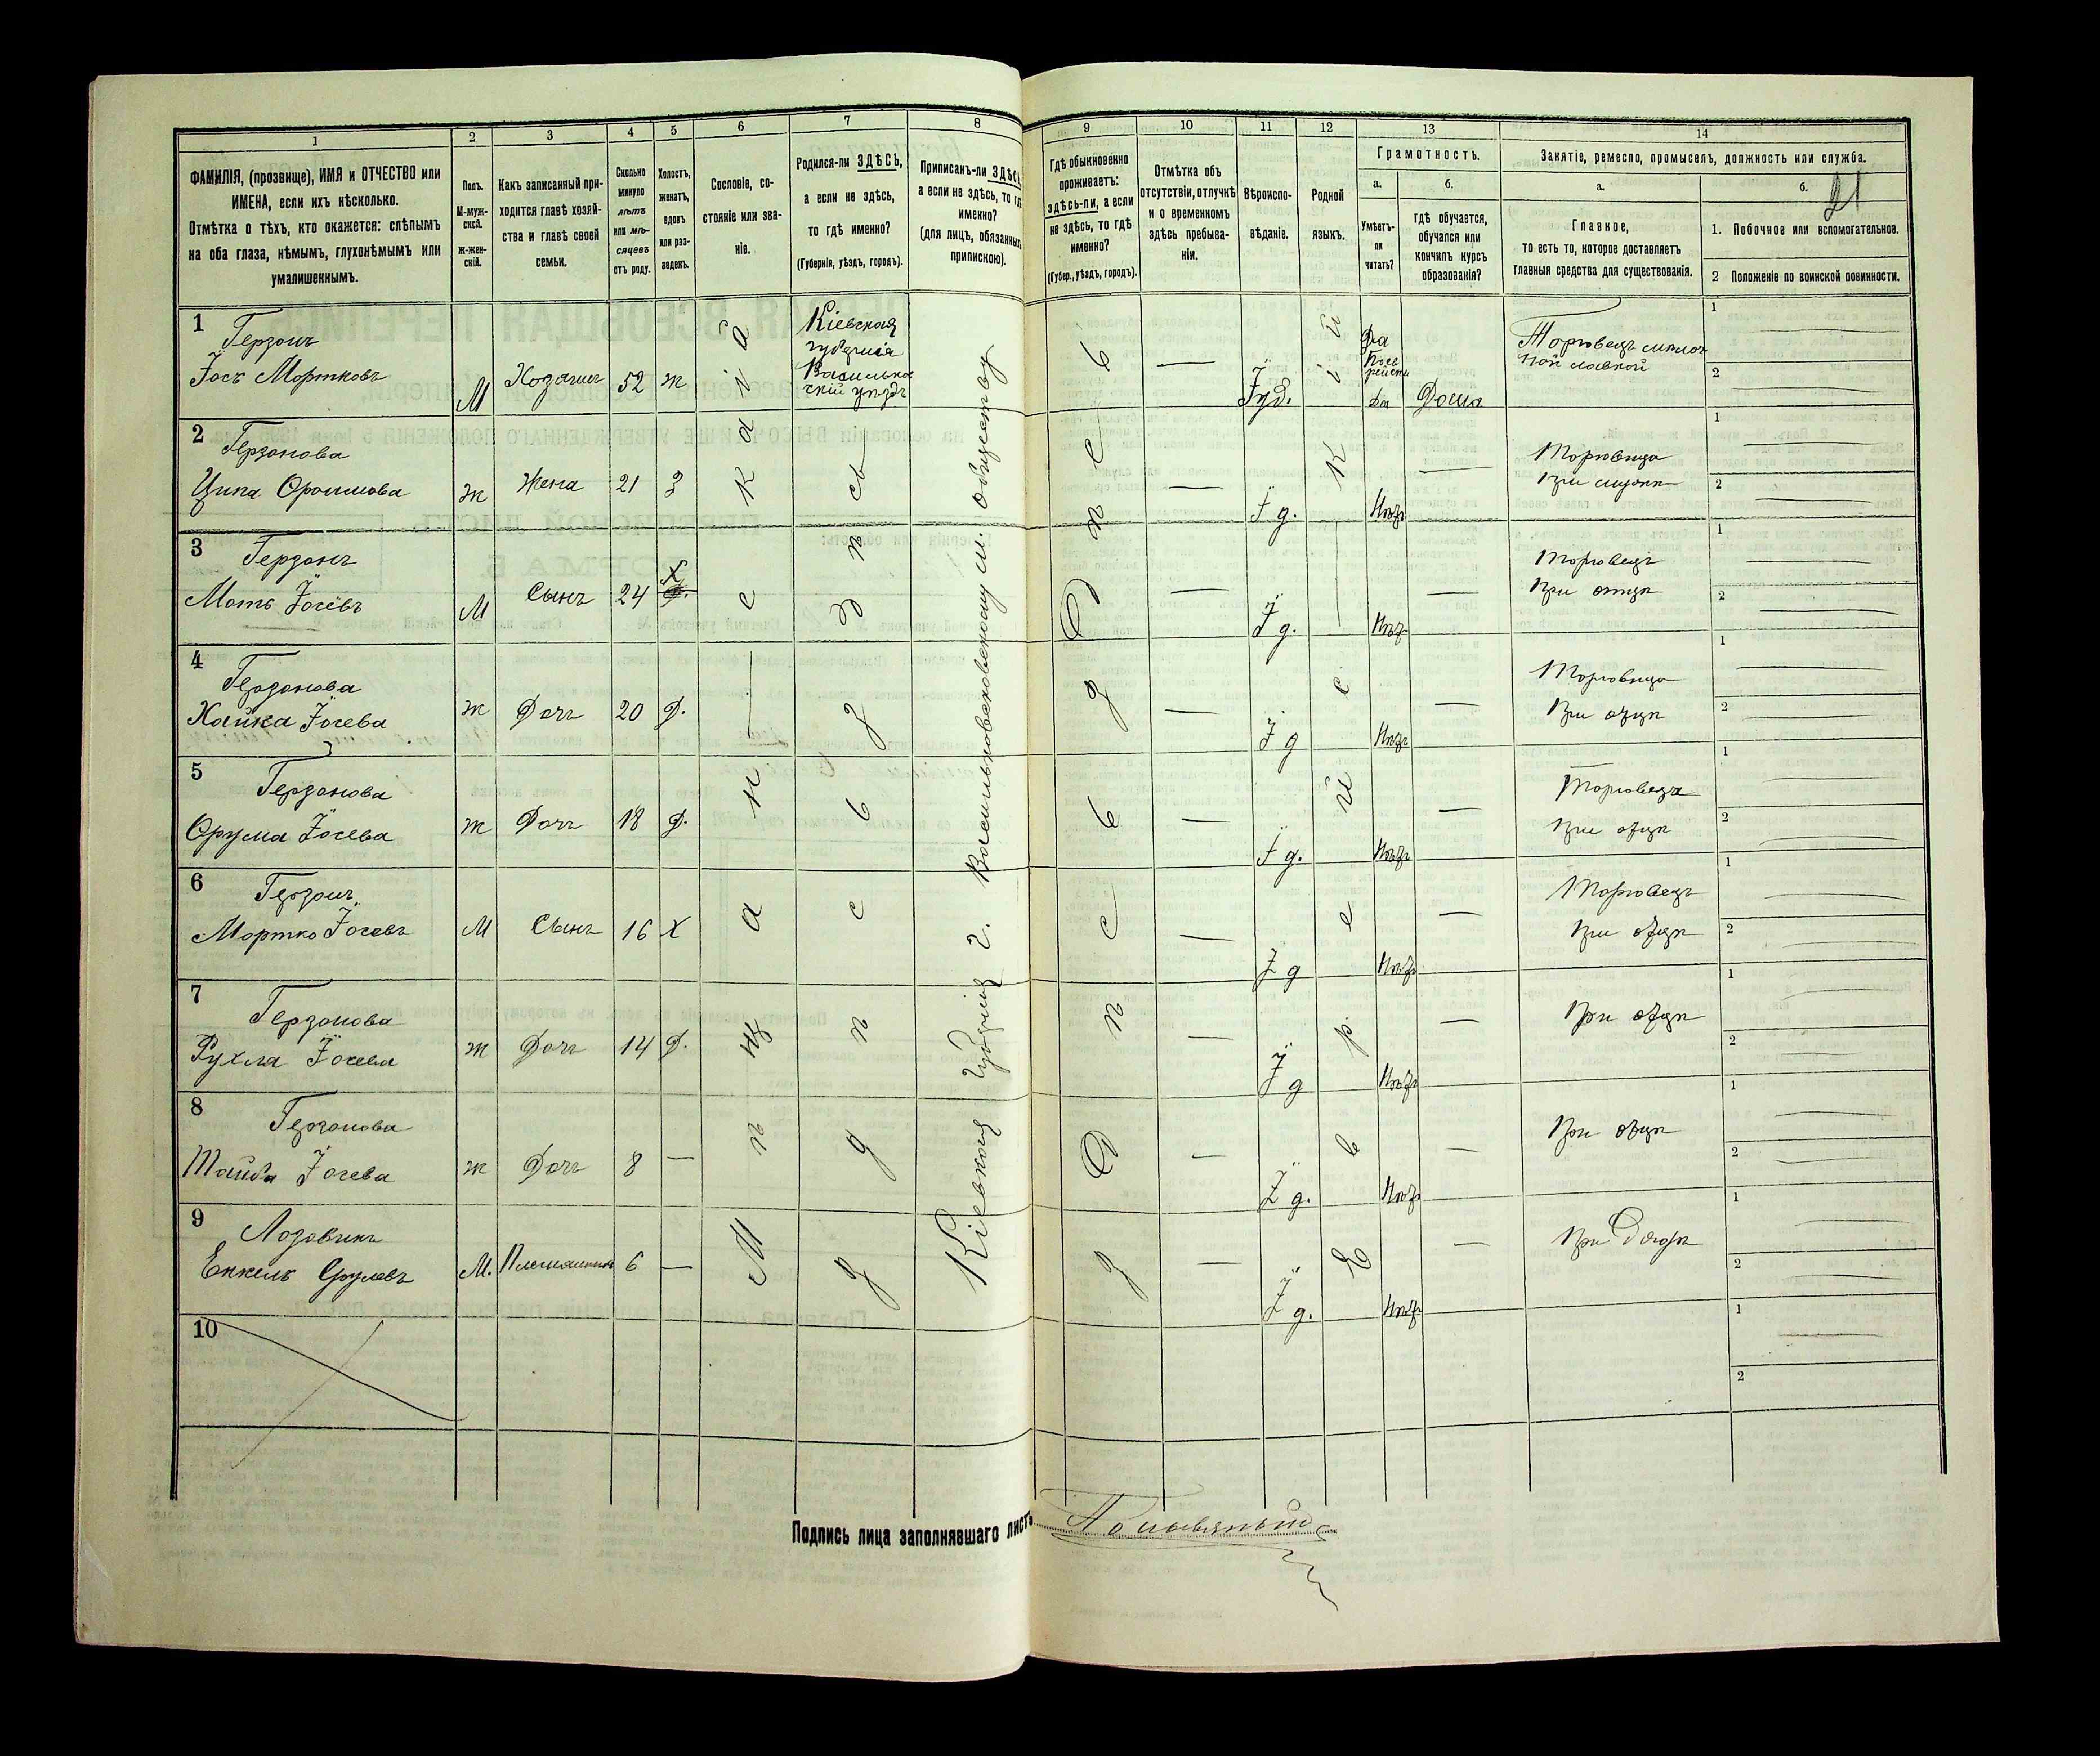 1
2
3
4
5
6
7
8
9
10
11
12
13
14
ФАМИЛІЯ, (прозвище), ИМЯ и ОТЧЕСТВО или
ИМЕНА, если ихъ нѣсколько.
Отмѣтка о тѣхъ, кто окажется: слѣпымъ
на оба глаза, нѣмымъ, глухонѣмымъ или
умалишеннымъ.
Полъ.
М-муж-
ской.
ж-жен-
скій.
Какъ записанный при-
ходится главѣ хозяй-
ства и главѣ своей
семьи.
Сколько
минуло
лѣтъ
или мѣ-
сяцевъ
отъ роду.
Холостъ,
женатъ,
вдовъ
или раз-
веденъ.
Сословіе, со-
стояніе или зва-
ніе.
Родился-ли ЗДѢСЬ,
а если не здѣсь,
то гдѣ именно?
(Губернія, уѣздъ, городъ).
Приписанъ-ли ЗДѢСЬ
а если не здѣсь, то гдѣ
именно?
(для лицъ, обязанныхъ
припискою).
Гдѣ обыкновенно
проживаетъ:
здѣсь-ли, а если
не здѣсь, то гдѣ
именно?
(Губер., уѣздъ, городъ).
Отмѣтка объ
отсутствіи, отлучкѣ
и о временномъ
здѣсь пребыва-
ніи.
Вѣроиспо-
вѣданіе.
Родной
языкъ.
Грамотность.
а.
Умѣетъ-
ли
читать?
б.
гдѣ обучается,
обучался или
кончилъ курсъ
образованія?
Занятіе, ремесло, промыселъ, должность или служба.
а.
Главное,
то есть то, которое доставляетъ
главныя средства для существованія.
б.
21
1. Побочное или вспомогательное.
2 Положеніе по воинской повинности.
1
Герзонъ
Іось Мортковъ
М
Хозяинъ
52
ж
Кіевская
губернія
Васильков
скій уѣздъ
Іуд.
Да
Дома
Торговецъ
лавкой
1
2
2
Герзонова
Ципа Сроимова
ж
Жена
21
З
І д.
Нѣтъ
Торговица
при мужѣ
1
2
3
Герзонъ
Моть Іосевъ
М
Сынъ
24
Х
І д.
Нѣтъ
Торговецъ
при отцѣ
1
2
4
Герзонова
Хайка Іосева
ж
Дочь
20
Д.
І д
Нѣтъ
Торговица
при отцѣ
1
2
5
Герзонова
Іосева
ж
Дочь
18
Д.
І д.
Нѣтъ
при отцѣ
1
2
6
Герзонъ
Мортко Іосевъ
М
Сынъ
16
Х
І д
Нѣтъ
Торговецъ
при отцѣ
1
2
7
Герзонова
Рухля Іосева
ж
Дочь
14
Д.
І д
Нѣтъ
При отцѣ
1
2
8
Герзонова
Тауба Іосева
ж
Дочь
8
І д.
Нѣтъ
При отцѣ
1
2
9
Лозовикъ
Енкель Срулевъ
М.
Племянникъ
6
І д.
Нѣтъ
При Дядѣ
1
2
10
1
2
Мѣщанинъ
Кіевская Губернія г. Васильковъ
обществу
Здѣсь
Здѣсь
Здѣсь
Здѣсь
Еврейскій
Подпись лица заполнявшаго листъ